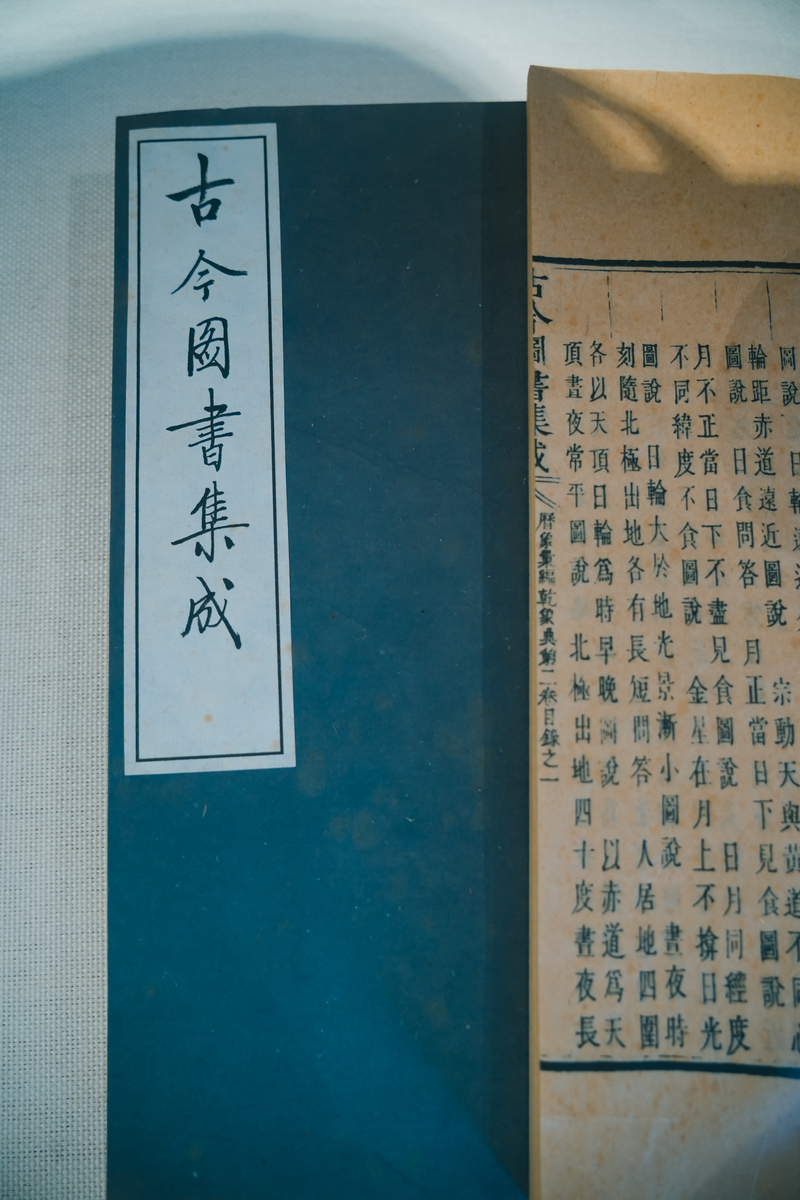 古今圖書集成
圖說 日輪
輪距赤道遠近圖說 宗動天與黃道不同心
圖說 日食問答 月正當日下見食圖說
月不正當日下不盡見食圖說 日月同經度
不同緯度不食圖說 金星在月上不揜日光
圖說 日輪大於地光景漸小圖說 晝夜時
刻隨北極出地各有長短問答 人居地四圍
各以天頂日輪爲時早晚圖說 以赤道爲天
頂晝夜常平圖說 北極出地四十度晝夜長
古今圖書集成 曆象彙編乾象典第二卷目錄之一